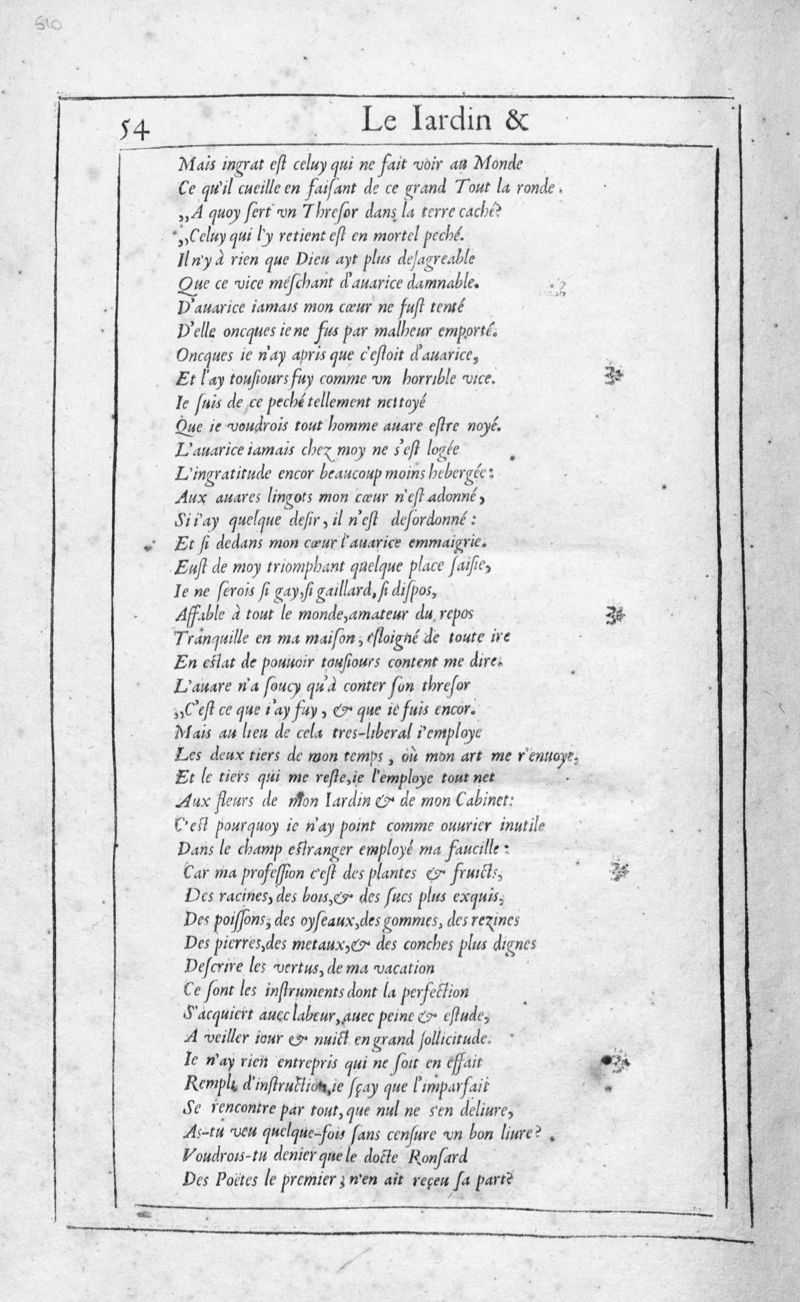 510
54
Le Iardin &
Mais ingrat eſt celuy qui ne fait voir au Monde
Ce qu'il cueille en faiſant de ce grand Tout la ronde.
„A quoy ſert vn Threſor dans la terre caché?
„Celuy qui l'y retient eſt en mortel peché.
Il n'y à rien que Dieu ayt plus deſagreable
Que ce vice meſchant d'auarice damnable.
D'auarice iamais mon cœur ne fuſt tenté
D'elle oncques ie ne fus par malheur emporté.
Oncques ie n'ay apris que c'eſtoit d'auarice,
Et l'ay touſiours fuy comme vn horrible vice.
Ie ſuis de ce peché tellement nettoyé
Que ie voudrois tout homme auare eſtre noyé.
L'auarice iamais chez moy ne s'eſt logée
L'ingratitude encor beaucoup moins hebergée:
Aux auares lingots mon cœur n'eſt adonné,
Si i'ay quelque deſir, il n'eſt deſordonné:
Et ſi dedans mon cœur l'auarice emmaigrie.
Euſt de moy triomphant quelque place ſaiſie,
Ie ne ſerois ſi gay, ſi gaillard, ſi diſpos,
Affable à tout le monde, amateur du repos
Tranquille en ma maiſon, eſloigné de toute ire
En eſtat de pouuoir touſiours content me dire.
L'auare n'a ſoucy qu'à conter ſon threſor
„C'eſt ce que i'ay fuy, & que ie fuis encor.
Mais au lieu de cela tres-liberal i'employe
Les deux tiers de mon temps, où mon art me r'enuoye,
Et le tiers qui me reſte, ie l'employe tout net
Aux fleurs de mon Iardin & de mon Cabinet:
C'eſt pourquoy ie n'ay point comme ouurier inutile
Dans le champ eſtranger employé ma faucille:
Car ma profeſſion c'eſt des plantes & fruicts,
Des racines, des bois, & des ſucs plus exquis,
Des poiſſons, des oyſeaux, des gommes, des rezines
Des pierres, des metaux, & des conches plus dignes
Deſcrire les vertus, de ma vacation
Ce ſont les inſtruments dont la perfection
S'acquiert auec labeur, auec peine & eſtude,
A veiller iour & nuict en grand ſollicitude.
Ie n'ay rien entrepris qui ne ſoit en effait
Rempli d'inſtruction, ie ſçay que l'imparfait
Se rencontre par tout, que nul ne s'en deliure,
As-tu veu quelque-fois ſans cenſure vn bon liure?
Voudrois-tu denier que le docte Ronſard
Des Poëtes le premier, n'en ait reçeu ſa part?